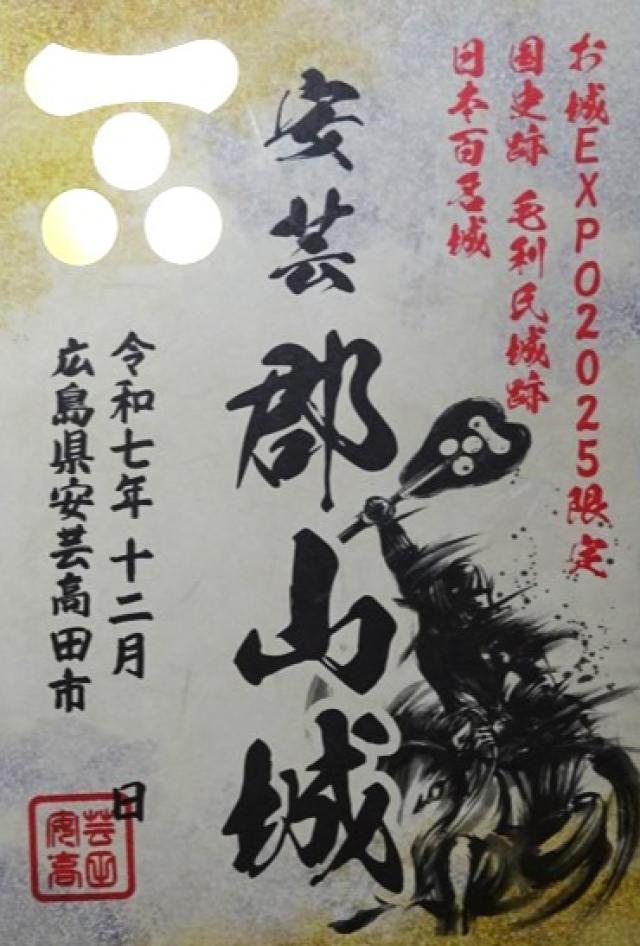 お城EXPO2025限定
国史跡 毛利氏城跡
日本百名城
安芸 郡山城
令和七年 十二月 日
広島県安芸高田市
安芸高田